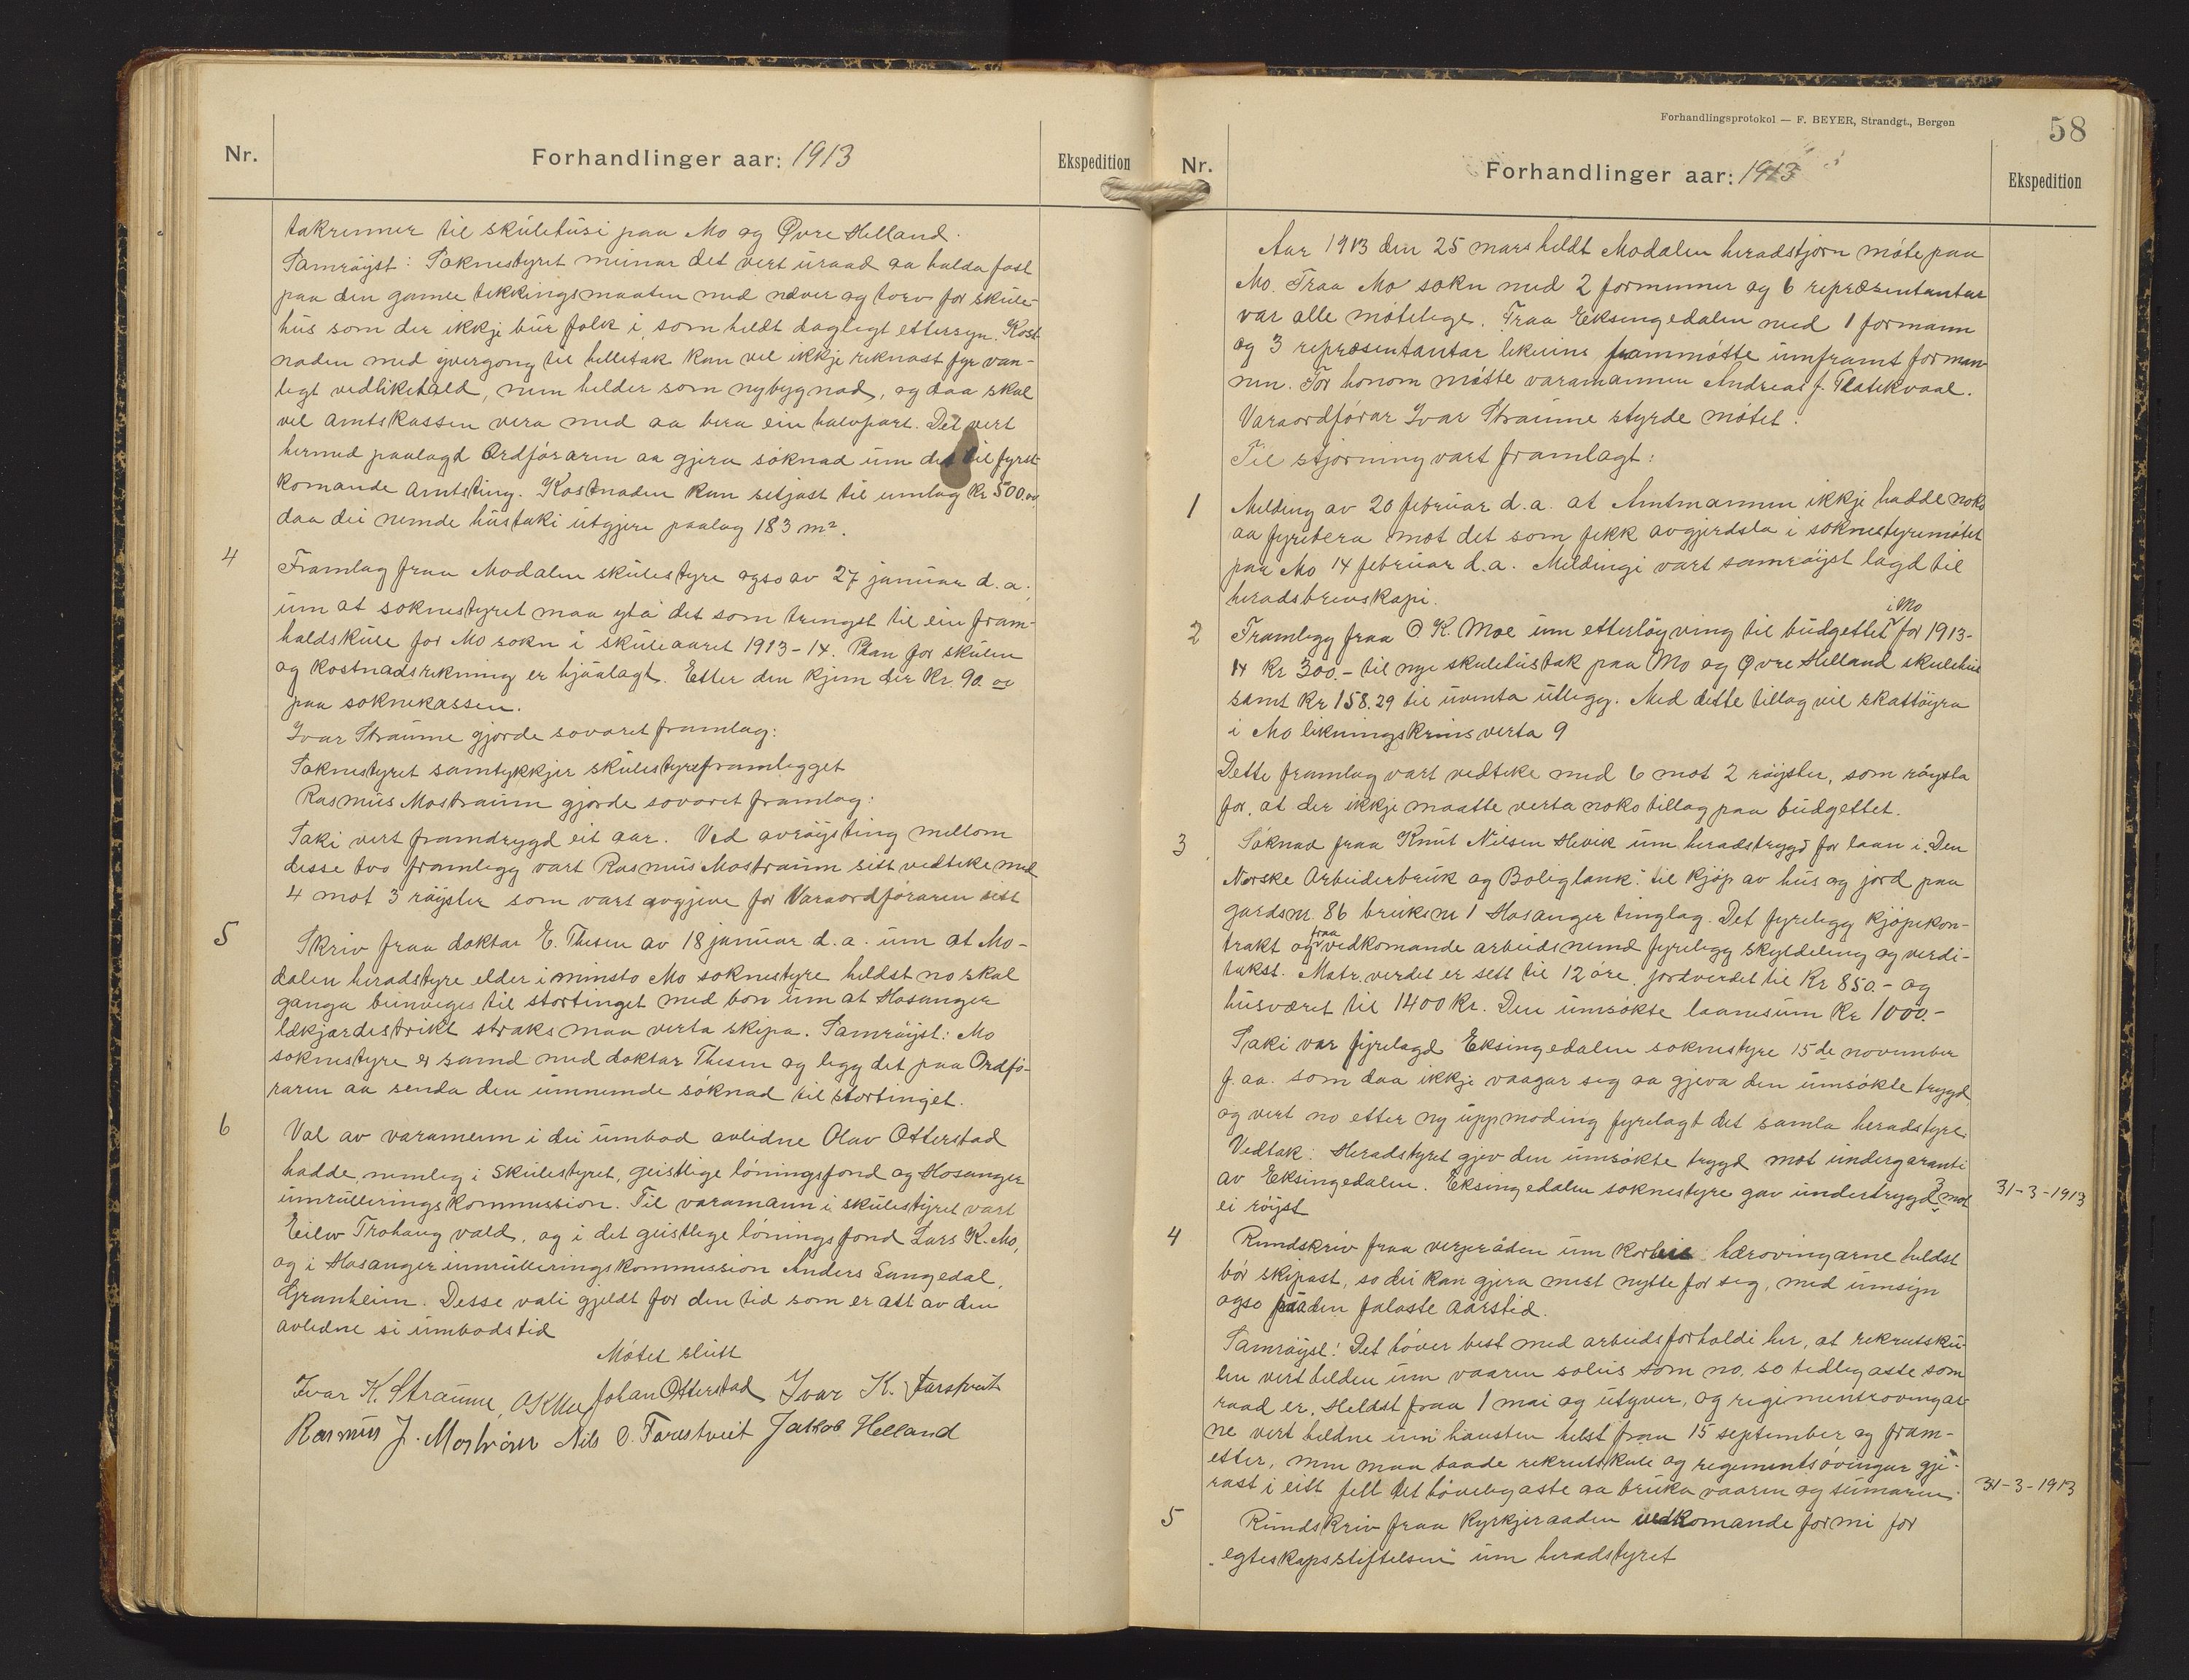 Nr.
Forhandlinger aar: 1913
Ekspedition
takrenner til skulehusi paa Mo og Øvre Helland.
Samrøyst: Soknestyret meinar det vert uraad aa halda fast
paa den gamle tekkingsmaaten med never og torv for skule-
hus som der ikkje bur folk i, som heldt daglegt ettersyn. Kost-
naden med yvergong til helletak kan vel ikkje reknast fyr van-
legt vedlikehald, men helder som nybygnad, og daa skal
vel Amtskassen vera med aa bera ein halvpart. Det vert
hermed paalagd Ordføraren aa gjera søknad um det til fyrst-
komande Amtsting. Kostnaden kan setjast til umlag Kr 500.00
daa dei nemde hustaki utgjere paalag 183 m².
4
Framlag fraa Modalen skulestyre ogso av 27 januar d.a.
um at soknestyret maa yta det som trengst til ein fram-
haldskule for Mo sokn i skuleaaret 1913-14. Plan for skulen
og kostnadsrekning er hjaalagt. Etter den kjem der Kr. 90.00
paa soknekassen.
Ivar Straume gjorde sovoret framlag:
Soknestyret samtykkjer skulestyreframlegget
Rasmus Mostraum gjorde sovoret framlag:
Saki vert framdrygd eit aar. Ved avrøysting mellom
desse two framlegg vart Rasmus Mostraum sitt vedteke med
4 mot 3 røyster som vart avgjeve for Varaordføraren sitt
5
Skriv fraa doktar E. Thesen av 18 januar d.a. um at Mo-
dalen heradstyre elder i minsto Mo soknestyre heldst no skal
ganga beinveges til stortinget med bøn um at Hosanger
lækjardistrikt straks maa verta skipa. Samrøyst: Mo
soknestyre er samd med doktar Thesen og legg det paa Ordfø-
raren aa senda den umnemde søknad til stortinget.
6
Val av varamenn i dei umbod avlidne Olav Otterstad
hadde, nemleg i Skulestyret, geistlege løningsfond og Hosanger
umrulleringskommission. Til varamann i skulestyret vart
Eilev Trohaug vald, og i det geistlege løningsfond Lars K. Mo,
og i Hosanger innrulleringskommission Anders Langedal,
Granheim. Desse vali gjeldt for den tid som er att av den
avlidne si umbodstid
Møtet slutt
Ivar K. Straume, OKMoe Johan Otterstad Ivar K. Farestveit
Rasmus J. Mostraum Nils O. Farestveit Jakob Helland
Forhandlingsprotokol — F. BEYER, Strandgt., Bergen
58
Nr.
Forhandlinger aar: 1913
Ekspedition
Aar 1913 den 25 mars heldt Modalen heradstjorn møte paa
Mo. Fraa Mo sokn med 2 formenner og 6 repræsentantar
var alle møtelege. Fraa Eksingedalen med 1 formann
og 3 repræsentantar lekeins frammøtte umframt forman-
nen. For honom møtte varamannen Andreas J. Flatekvaal.
Varaordførar Ivar Straume styrde møtet.
Til stjorning vart framlagt:
1
Melding av 20 februar d.a. at Amtmannen ikkje hadde noko
aa fyrebera mot det som fekk avgjerdsla i soknestyremøtet
paa Mo 14 februar d.a. Meldingi vart samrøyst lagd til
heradsbrevskapi.
2
Framlegg fraa O.K. Moe um etterløyving til budgettet i Mo for 1913-
14 Kr 300.- til nye skulehustak paa Mo og Øvre Helland skulehus
samt Kr 158.29 til uventa utlegg. Med dette tillag vil skattøyra
i Mo likningskrins verta 9
Dette framlag vart vedteke med 6 mot 2 røyster, som røysta
for, at der ikkje maatte verta noko tillag paa budgettet.
3
Søknad fraa Knut Nilsen Hevik um heradstrygd for laan i "Den
Norske Arbeiderbruk og Boligbank" til kjøp av hus og jord paa
gardsnr. 86 bruksnr 1 Hosanger tinglag. Det fyrelegg kjøpekon-
trakt og fraa vedkomande arbeidsnemnd fyrelegg skyldeling og verdi-
takst. Matr. verdet er sett til 12 øre, jordverdet til Kr 850.- og
husværet til 1400 Kr. Den umsøkte laanesum Kr 1000.-
Saki var fyrelagd Eksingedalen soknestyre 15de november
f. aa. som daa ikkje vaagar seg aa gjeva den umsøkte trygd
og vert no etter ny uppmoding fyrelagt det samla heradstyre.
Vedtak: Heradstyret gjev den umsøkte trygd mot undergaranti
av Eksingedalen. Eksingedalen soknestyre gav undertrygd 3 mot
ei røyst
31-3-1913
4
Rundskriv fraa verjeråden um korleis hærøvingarne heldst
bør skipast, so dei kan gjera mest nytte for seg, med umsyn
ogso paa den falaste aarstid.
Samrøyst: Det høver best med arbeidsforholdi her, at rekrutsku-
len vert helden um vaaren soleis som no, so tidlegaste som
raad er. Heldst fraa 1 mai og utyver, og regimentsøvingar-
ne vert heldne um hausten helst fraa 15 september og fram-
etter, men maa baade rekrutskule og regimentsøvingar gje-
rast i eitt fell det høvelegaste aa bruka vaaren og sumaren.
31-3-1913
5
Rundskriv fraa Kyrkjeraaden vedkomande formi for
"egteskapsstiftelsen" um heradstyret